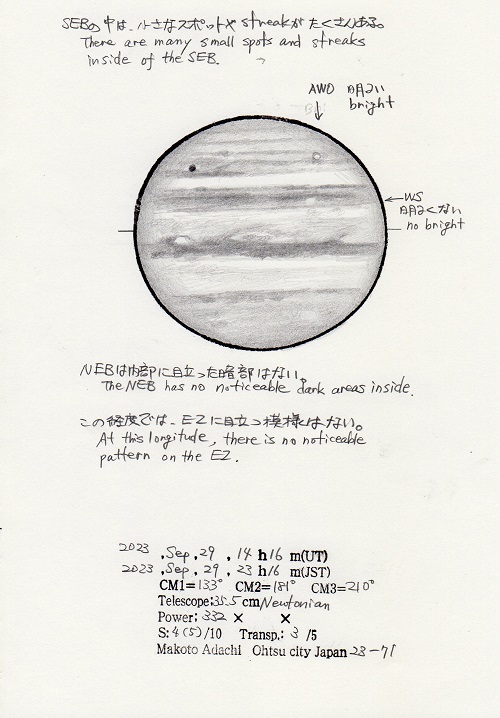 SEBの中は、小さなスポットやstreakがたくさんある。
There are many small spots and streaks
inside of the SEB.
AWO 明るい
bright
WS
明るくない
no bright
NEBは内部に目立った暗部はない。
The NEB has no noticeable dark areas inside.
この経度では、EZに目立つ模様はない。
At this longitude, there is no noticeable
pattern on the EZ.
2023 ,Sep ,29 , 14 h 16 m(UT)
2023 ,Sep, 29 , 23 h 16 m(JST)
CM1=133° CM2=181° CM3=210°
Telescope;35.5 cm Newtonian
Power; 332 × ×
S: 4 (5) /10 Transp.; 3 /5
Makoto Adachi Ohtsu city Japan 23-71